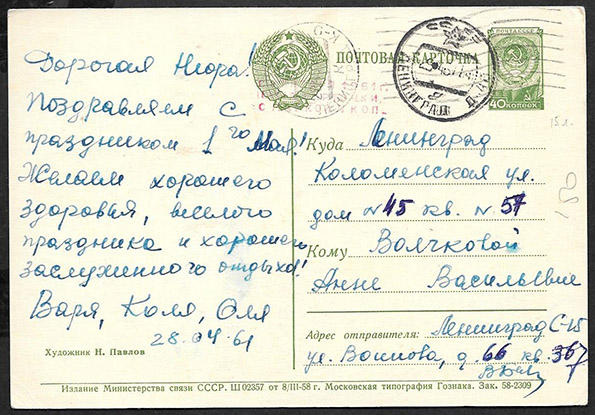 Дорогая Нюра!
Поздравляем с
праздником 1го Мая!
Желаем хорошего
здоровья, веселого
праздника и хорошего
заслуженного отдыха!
Варя, Коля, Оля
28.04.61
Художник Н. Павлов
ПОЧТОВАЯ КАРТОЧКА
ПОЧТА СССР
40 КОПЕЕК
СССР
ЛЕНИНГРАД
15 л.
150
Куда Ленинград
Коломенская ул.
дом N 45 кв. N 57
Кому Волчковой
Анне Васильевне
Адрес отправителя: Ленинград С-15
ул. Воинова, д. 66 кв. 367
Издание Министерства связи СССР. Ш 02357 от 8/III-58 г. Московская типография Гознака. Зак. 58-2309